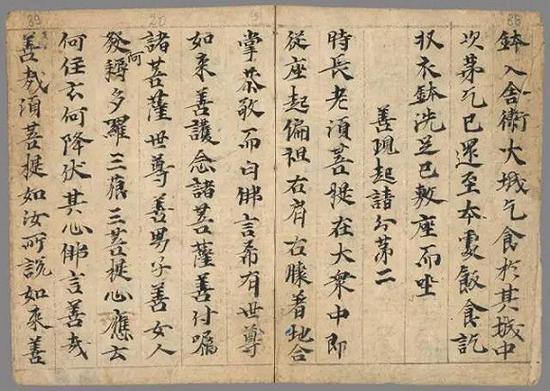 鉢入舍衛大城乞食於其城中
次苐乞已還至本處飯食訖
収衣鉢洗足已敷座而坐
善現起請分苐二
時長老須菩提在大衆中即
從座起偏袒右肩右膝着地合
掌恭敬而白佛言希有世尊
如来善護念諸菩薩善付囑
諸菩薩世尊善男子善女人
發阿耨多羅三藐三菩提心應云
何住云何降伏其心佛言善哉
善哉須菩提如汝所說如来善
20
39